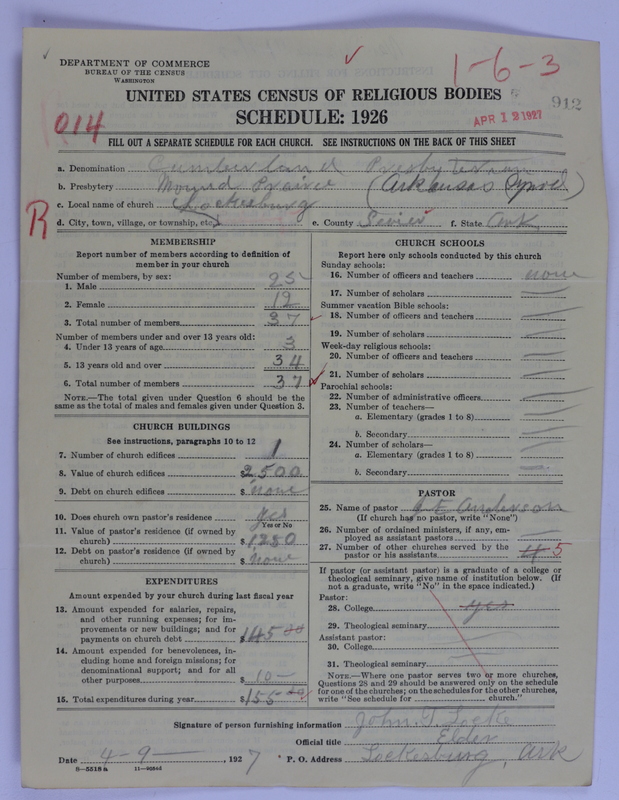 DEPARTMENT OF COMMERCE
BUREAU OF THE CENSUS
WASHINGTON
1-6-3
UNITED STATES CENSUS OF RELIGIOUS BODIES
912
SCHEDULE: 1926
APR 12 1927
014
FILL OUT A SEPARATE SCHEDULE FOR EACH CHURCH. SEE INSTRUCTIONS ON THE BACK OF THIS SHEET
a. Denomination Cumberland Presbyterian
b. Presbytery Mound Prairie (Arkansas Synod)
c. Local name of church Lockesburg
R
d. City, town, village, or township, etc. e. County Sevier f. State Ark
MEMBERSHIP
Report number of members according to definition of member in your church
Number of members, by sex:
1. Male 25
2. Female 12
3. Total number of members 37
Number of members under and over 13 years old:
4. Under 13 years of age 3
5. 13 years old and over 34
6. Total number of members 37
NOTE.—The total given under Question 6 should be the same as the total of males and females given under Question 3.
CHURCH BUILDINGS
See instructions, paragraphs 10 to 12
7. Number of church edifices 1
8. Value of church edifices $2500
9. Debt on church edifices $ none
10. Does church own pastor's residence yes
Yes or No
11. Value of pastor's residence (if owned by church) $1250
12. Debt on pastor's residence (if owned by church) $ none
EXPENDITURES
Amount expended by your church during last fiscal year
13. Amount expended for salaries, repairs, and other running expenses; for improvements or new buildings; and for payments on church debt $145 00
14. Amount expended for benevolences, including home and foreign missions; for denominational support; and for all other purposes $ 10—
15. Total expenditures during year $155 00
CHURCH SCHOOLS
Report here only schools conducted by this church
Sunday schools:
16. Number of officers and teachers none
17. Number of scholars
Summer vacation Bible schools:
18. Number of officers and teachers
19. Number of scholars
Week-day religious schools:
20. Number of officers and teachers
21. Number of scholars
Parochial schools:
22. Number of administrative officers
23. Number of teachers—
a. Elementary (grades 1 to 8)
b. Secondary
24. Number of scholars—
a. Elementary (grades 1 to 8)
b. Secondary
PASTOR
25. Name of pastor J E Anderson
(If church has no pastor, write "None")
26. Number of ordained ministers, if any, employed as assistant pastors
27. Number of other churches served by the pastor or his assistants 4 5
If pastor (or assistant pastor) is a graduate of a college or theological seminary, give name of institution below. (If not a graduate, write "No" in the space indicated.)
Pastor:
28. College yes
29. Theological seminary
Assistant pastor:
30. College
31. Theological seminary
NOTE.—Where one pastor serves two or more churches, Questions 28 and 29 should be answered only on the schedule for one of the churches; on the schedules for the other churches, write "See schedule for church."
Signature of person furnishing information John T. Locke
Official title Elder
Date 4-9-, 1927 P. O. Address Lockesburg, Ark
8-5518a 11-9264d